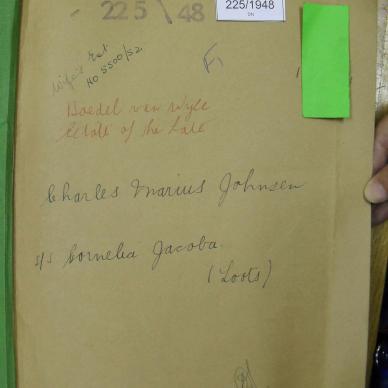 225/1948
225 \ 48
Wife's Est
HO 5500/52
F1
Boedel van Wyle
Estate of the Late
Charles Marius Johnsen
s/s Cornelia Jacoba
(Loots)